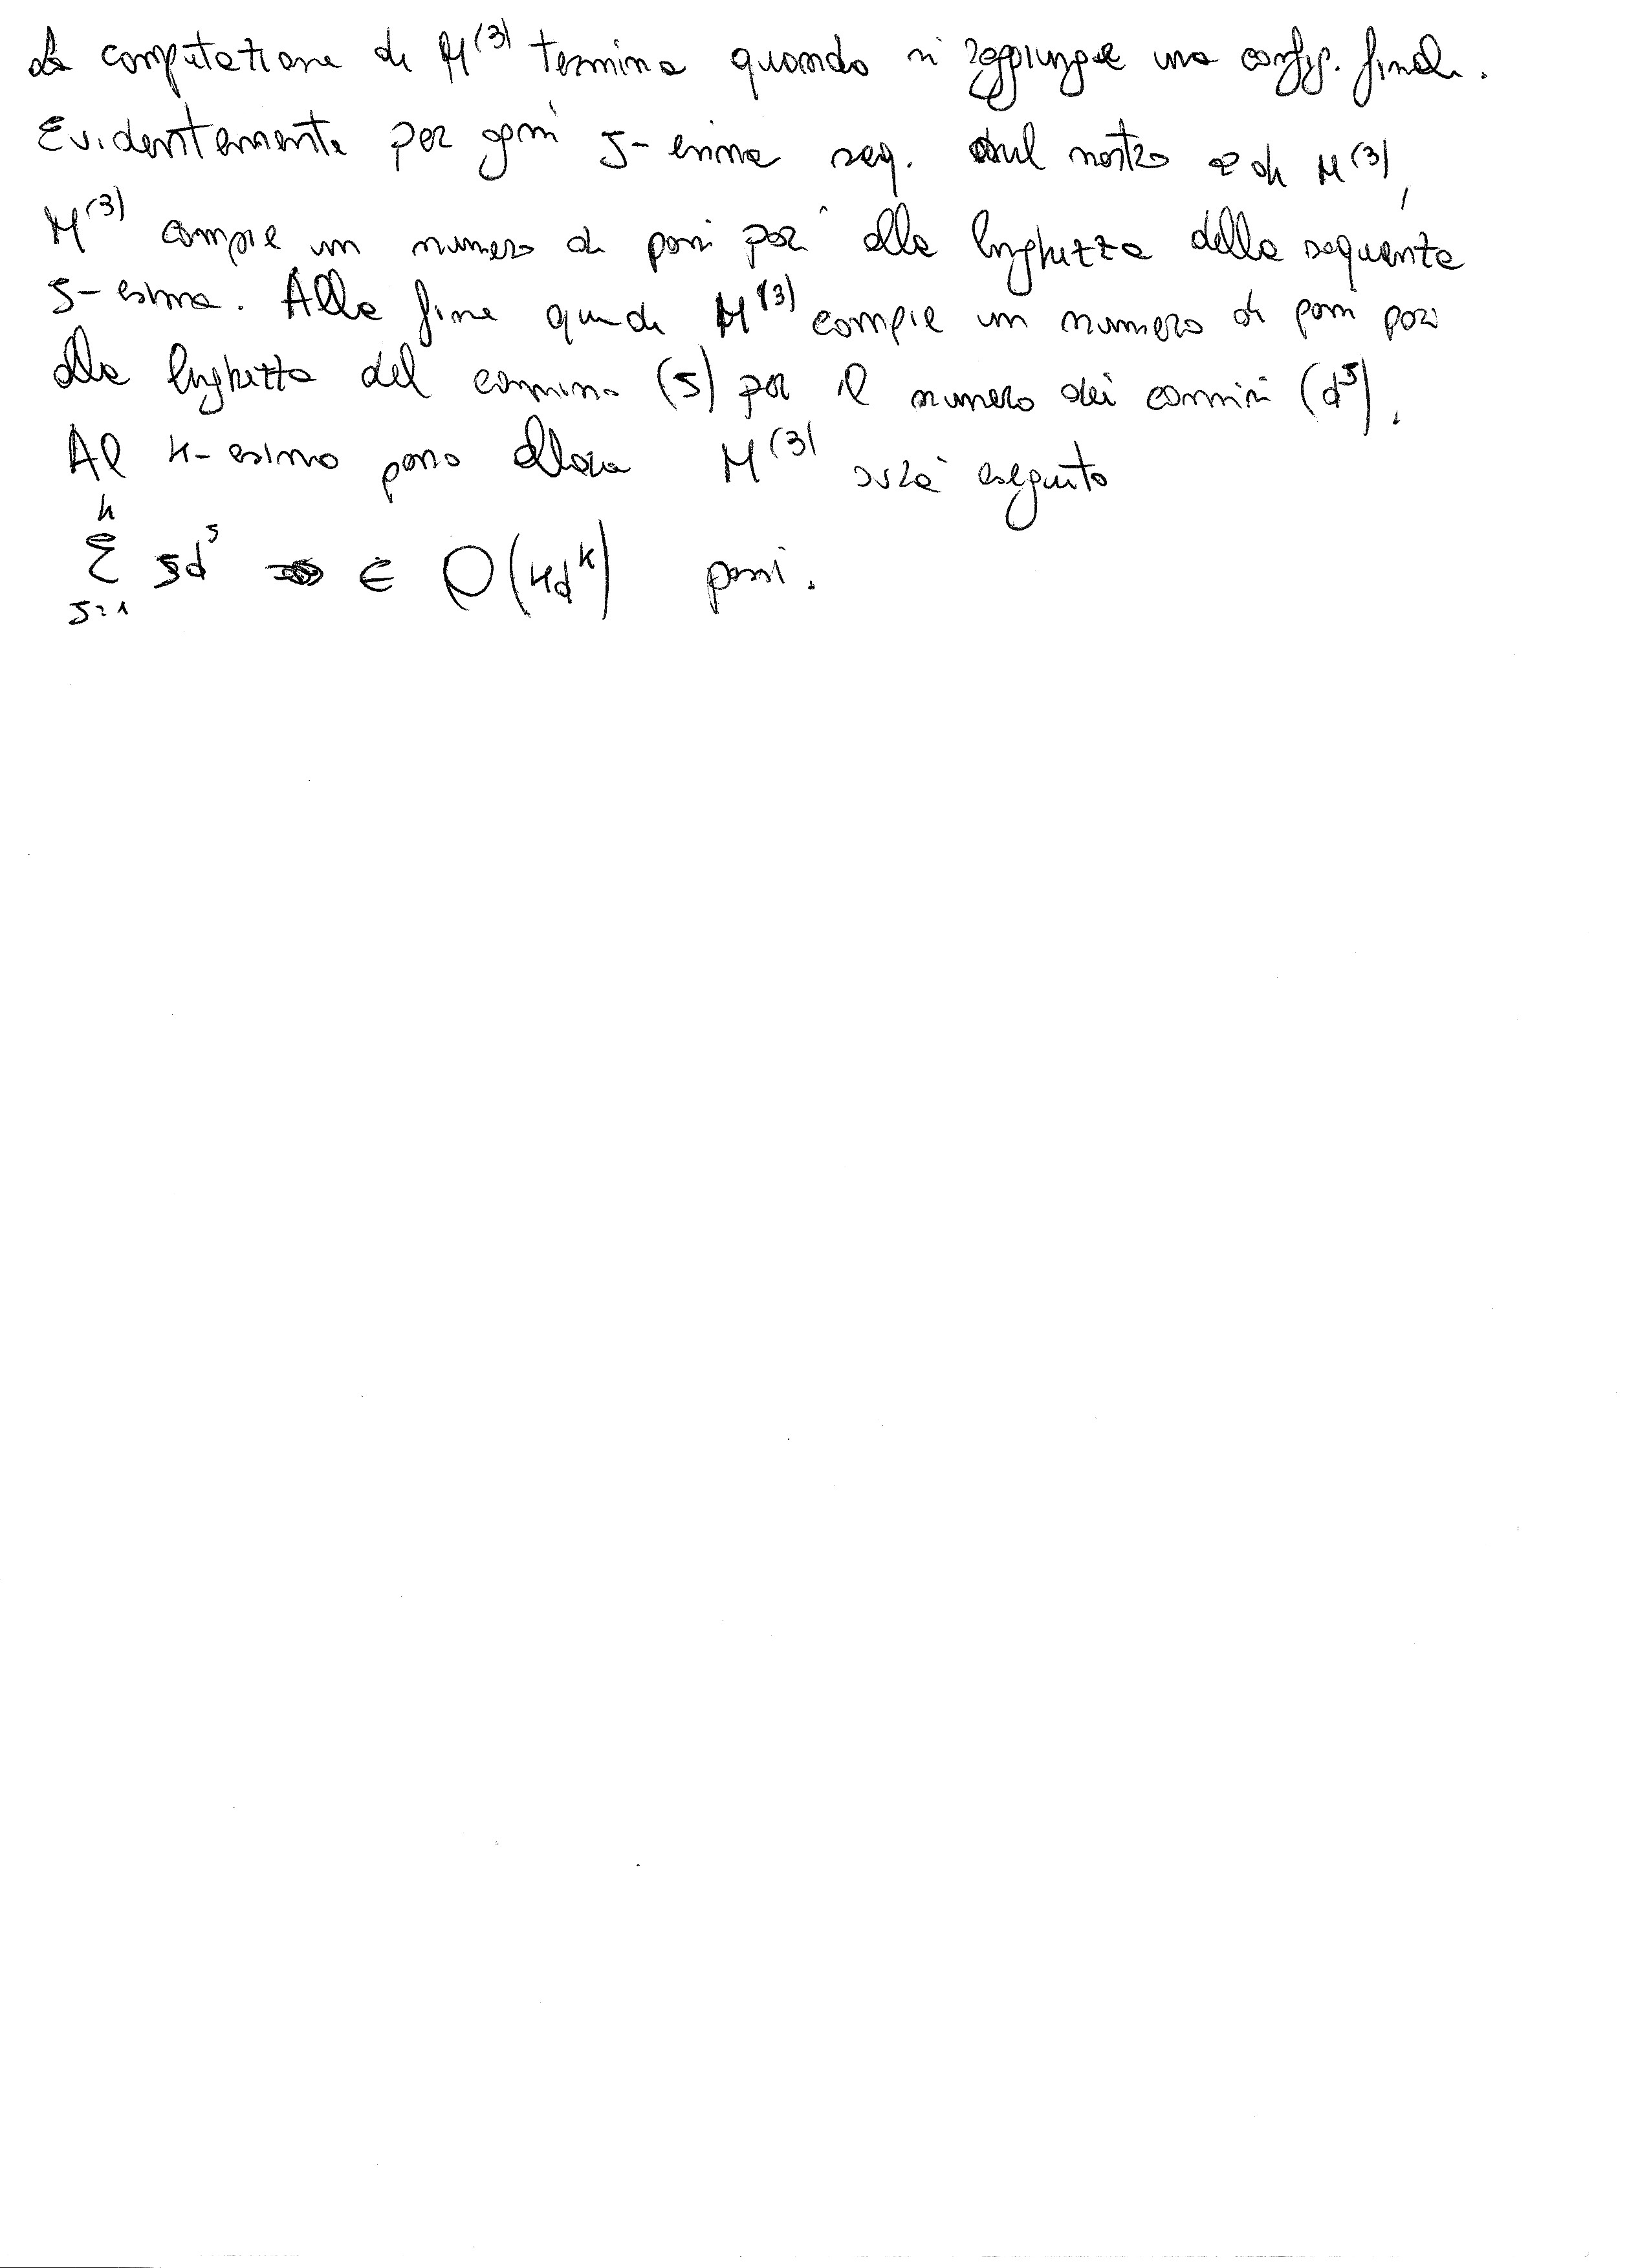 La computazione di M^(3) termina quando si raggiunge una config. finale.
Evidentemente per ogni J-esima seq. sul nastro 2 di M^(3),
M^(3) compie un numero di passi pari alla lunghezza della sequenza
J-esima. Alla fine quindi M^(3) compie un numero di passi pari
alla lunghezza del cammino (J) per il numero dei cammini (d^J).
Al k-esimo passo allora M^(3) avrà eseguito
k
Σ Jd^J ∈ O(kd^k) passi.
J=1